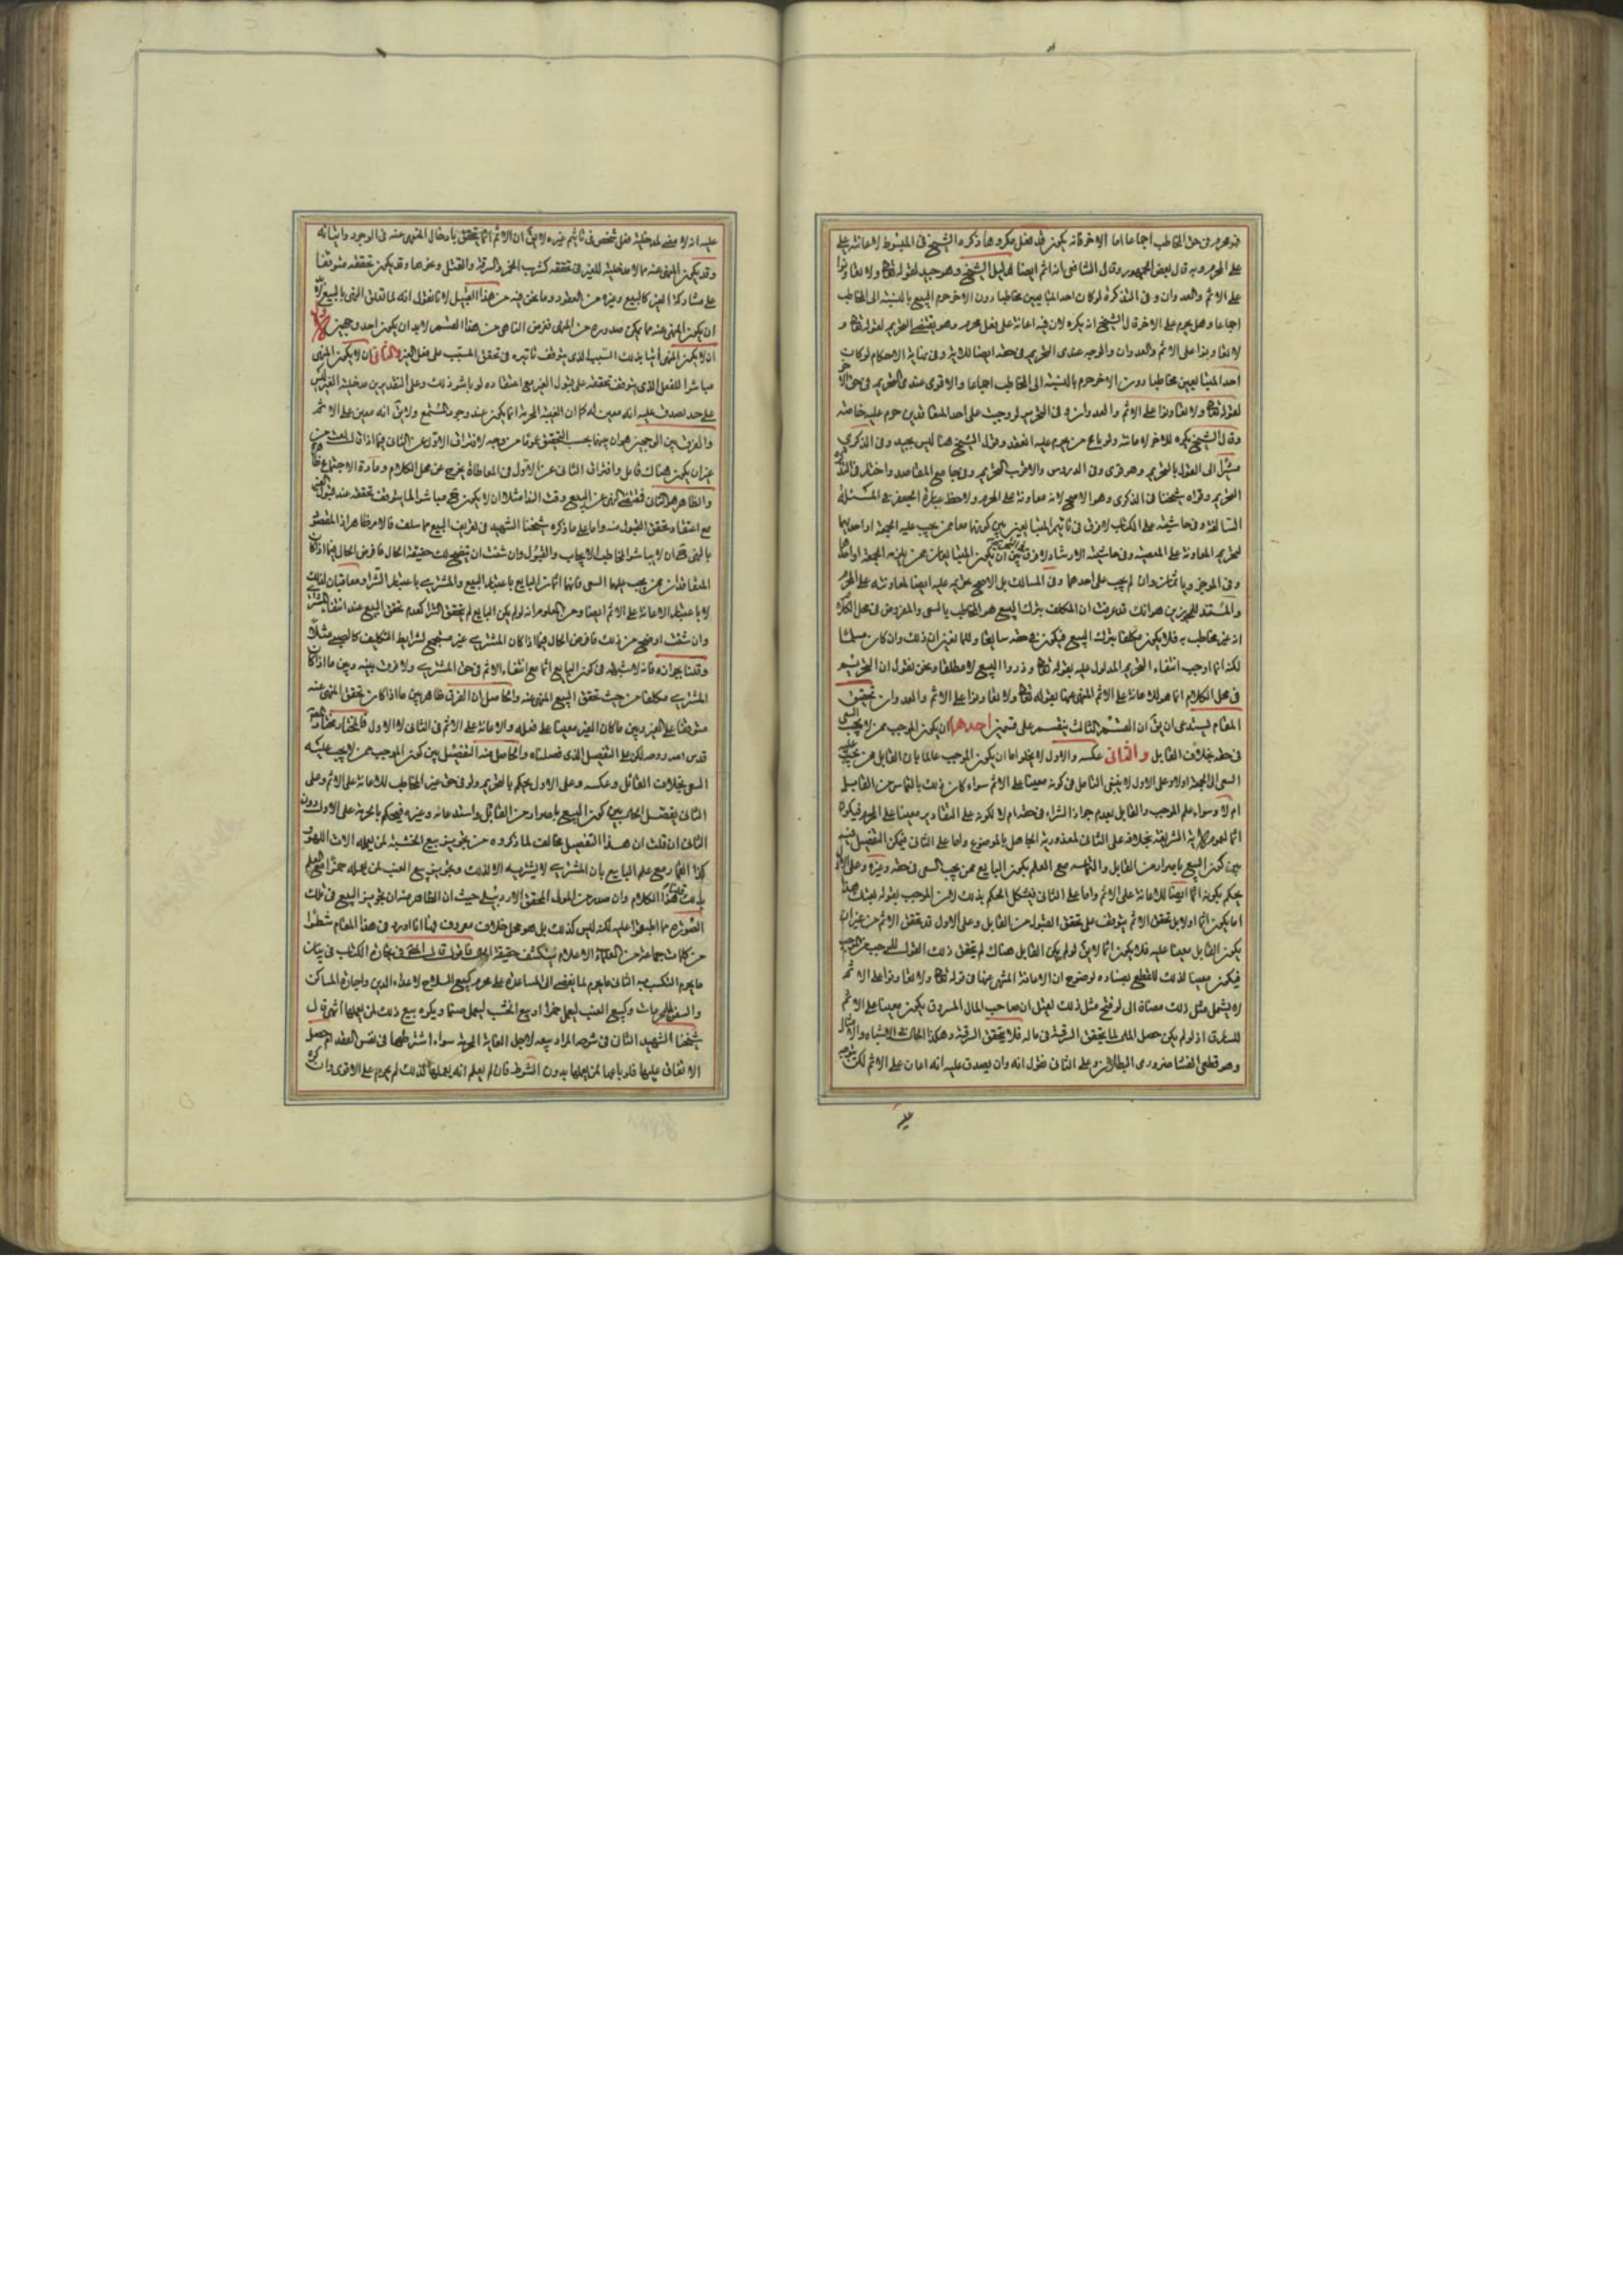 فهو محرم فى حق المخاطب اجماعا اما الاخر فانه يكون قد فعل مكروها ذكره الشيخ فى المبسوط لاعانته على
على المحرم وبه قال بعض الجمهور وقال الشافعى انه اثم ايضا الشيخ وهو جيد لقوله تعالى ولا تعاونوا
على الاثم والعدوان وفى التذكرة لو كان احد المتبايعين مخاطبا دون الاخر حرم البيع بالنسبة الى المخاطب
اجماعا وهل يحرم على الاخر قال الشيخ انه يكره لان فيه اعانة على فعل محرم وهو يقتضى التحريم لقوله تعالى و
لا تعاونوا على الاثم والعدوان والوجه عندى التحريم فى حقه ايضا للاية وفى نهاية الاحكام لو كان
احد المتبايعين مخاطبا دون الاخر حرم بالنسبة الى المخاطب اجماعا والاقوى عندى التحريم فى حق الاخر
لقوله تعالى ولا تعاونوا على الاثم والعدوان وفى التحرير لو وجبت على احد المتعاقدين حرم عليه خاصة
وقال الشيخ يكره للاخر لاعانته ولو باع من يحرم عليه العقد وقول الشيخ هنا ليس بجيد وفى الذكرى
الى القول بالتحريم وهو قوى وفى الدروس والاقرب التحريم وفى جامع المقاصد واختار فى التذكرة
التحريم وقواه شيخنا فى الذكرى وهو الاصح لانه معاونة على المحرم ولاحظ عبارة الجعفرية المسئلة
السالفة وفى حاشيته على الكتاب لا فرق فى تاثيم المتبايعين بين كونهما معا ممن يجب عليه الجمعة او احدهما
لتحريم المعاونة على المعصية وفى حاشية الارشاد ولا فرق بين ان يكون المتبايعان ممن يلزمه الجمعة او احدهما
وفى الموجز وياثمان وان لم يجب على احدهما وفى المسالك بل الاصح تحريمه عليه ايضا لمعاونته على المحرم
والمستند للمجوزين هو انك قد عرفت ان المكلف بترك البيع هو المخاطب بالسعى والمفروض فى محل الكلام
انه غير مخاطب به فلا يكون مكلفا بترك البيع فيكون فى حقه سايغا وللمانعين ان ذلك وان كان مسلما
لكنه انما اوجب انتفاء التحريم المدلول عليه بقوله تعالى وذروا البيع لا مطلقا ونحن نقول ان التحريم
فى محل الكلام انما هو للاعانة على الاثم المنهى عنها بقوله تعالى ولا تعاونوا على الاثم والعدوان تحقيق
المقام يستدعى ان يق ان القسم الثالث ينقسم على قسمين احدهما ان يكون الموجب ممن لا يجب السعى
فى حقه بخلاف القابل والثانى عكسه والاول لا يخلو اما ان يكون الموجب عالما بان القابل ممن يجب عليه
السعى الى الجمعة اولا وعلى الاول لا ينبغى التامل فى كونه معينا على الاثم سواء كان ذلك بالتماس من القابل
ام لا وسواء علم الموجب والقابل بعدم جواز الشراء فى حقه ام لا لكونه على التقادير معينا على المحرم فيكون
اثما لعموم الاية الشريفة بخلافه على الثانى لمعذورية الجاهل بالموضوع واما على الثانى فيمكن التفصيل فيه
بين كون البيع باصرار من القابل والتماسه مع العلم بكون البايع ممن يجب السعى فى حقه وغيره وعلى الاول
يحكم بكونه اثما ايضا للاعانة على الاثم واما على الثانى فيشكل الحكم بذلك لان الموجب بقوله بعتك هذا
اما يكون اثما اولا بل تحقق الاثم يتوقف على تحقق القبول من القابل وعلى الاول قد تحقق الاثم من غير ان
يكون القابل معينا عليه فلا يكون اثما لا يق لو لم يكن القابل هناك لم يتحقق ذلك القول للموجب
فيكون معينا لذلك للقطع بفساده لوضوح ان الاعانة المنهى عنها فى قوله تعالى ولا تعاونوا على الاثم
لا يشمل مثل ذلك مضافا الى لو فتح مثل ذلك لقيل ان صاحب المال المسروق يكون معينا على الاثم
للسارق اذ لو لم يكن حصل المال لما يتحقق السرقة فى ماله فلا يتحقق السرقة وهكذا الحال فى الاشباه والامثال
وهو قطعى الفساد ضرورى البطلان وعلى الثانى نقول انه وان يصدق عليه انه اعان على الاثم لكن
عليه انه لا معنى لمدخلية فعل شخص فى تاثيم غيره لا يق ان الاثم انما يتحقق بادخال المنهى عنه فى الوجود واتيانه
وقد يكون المنهى عنه مما لا مدخلية للغير فى تحققه كشرب الخمر والسرقة والقتل ونحوها وقد يكون تحققه متوقفا
على مشاركة الغير كالبيع وغيره من العقود وما نحن فيه من هذا القبيل لانا نقول انه لما تعلق النهى بالبيع
ان يكون المنهى عنه مما يمكن صدوره من المنهى فغرض الناهى من هذا القسم لا بد ان يكون احد وجهين
ان لا يكون المنهى اتيا بذلك السبب الذى يتوقف تاثيره فى تحقق المسبب على فعل الغير والثانى ان لا يكون المنهى
مباشرا للفعل الذى يتوقف تحققه على قبول الغير مع اعتقاده لو باشر ذلك وعلى التقديرين مدخلية الغير ليس
على حد يصدق عليه انه معين له كما ان الغيبة المحرمة انما يكون عند وجود المستمع ولا يق انه معين على الاثم
والفرق بين الوجهين هو ان بينهما بحسب التحقق عموما من وجه لافتراق الاول عن الثانى فيما اذا قال بعت من
غير ان يكون هناك قابل وافتراق الثانى عن الاول فى المعاطاة يخرج عن محل الكلام ومادة الاجتماع
والظاهر هو الثانى فمقتضى النهى عن البيع وقت النداء مثلا ان لا يكون مباشرا لما يتوقف تحققه عند قبول الغير
مع اعتقاد تحقق القبول منه واما على ما ذكره شيخنا الشهيد فى تعريف البيع مما سلف فالامر ظاهر اذ المقصود
بالنهى ان لا يباشر المخاطب الايجاب والقبول وان شئت ان يتضح لك حقيقة الحال فافرض الحال فيما اذا كان
المتعاقدان ممن يجب عليهما السعى فانهما اثمان البايع باعتبار البيع والمشترى باعتبار الشراء ومعاقبان لذلك
لا باعتبار الاعانة على الاثم ايضا ومن المعلوم انه لو لم يكن البايع لم يتحقق الشراء كعدم تحقق البيع عند انتفاء المشترى
وان شئت اوضح من ذلك فافرض الحال فيما اذا كان المشترى غير مستجمع لشرايط التكليف كالصبى مثلا
وقلنا بجوازه فانه لا شبهة فى كون البايع اثما مع انتفاء الاثم فى حق المشترى ولا فرق بينه وبين ما اذا كان
المشترى مكلفا من حيث تحقق البيع المنهى عنه والحاصل ان الفرق ظاهر بين ما اذا كان تحقق المنهى عنه
متوقفا على الغير وبين ما كان الغير معينا على فعله والاعانة على الاثم فى الثانى لا الاول فالمختار مختار
قدس الله روحه لكن على التفصيل الذى فصلناه والحاصل منه التفصيل بين كون الموجب ممن لا يجب عليه
السعى بخلاف القابل وعكسه وعلى الاول يحكم بالتحريم ولو فى حق غير المخاطب للاعانة على الاثم وعلى
الثانى يفصل الحال بين كون البيع باصرار من القابل واستدعائه وغيره فيحكم بالحرمة على الاول دون
الثانى ان قلت ان هذا التفصيل مخالف لما ذكروه من تجويز بيع الخشبة لمن يعمله الات اللهو
كذا القمار مع علم البايع بان المشترى لا يشتريه الا لذلك وتجويز بيع العنب لمن يعمله خمرا مع العلم
بذلك قلت هذا الكلام وان صدر من المولى المحقق الاردبيلى حيث ان الظاهر منه ان تجويز البيع فى تلك
الصورة مما اطبقوا عليه لكنه ليس كذلك بل هو محل خلاف معروف فها انا اورد فى هذا المقام شطرا
من كلمات جماعة من العلماء الاعلام لينكشف حقيقة الحال فاقول قال المحقق فى تجارة الكتاب فى بيان
ما يحرم التكسب به الثانى ما يحرم لما يفضى الى المساعدة على محرم كبيع السلاح لاعداء الدين واجارة المساكن
والسفن للمحرمات وكبيع العنب ليعمل خمرا او بيع الخشب ليعمل صنما ويكره بيع ذلك لمن يعملها انتهى قال
شيخنا الشهيد الثانى فى شرحه المراد بيعه لاجل الغاية المحرمة سواء اشترطها فى نفس العقد ام حصل
الاتفاق عليها فلو باعها لمن يعملها بدون الشرط فان لم يعلم انه يعملها كذلك لم يحرم على الاقوى وان كره